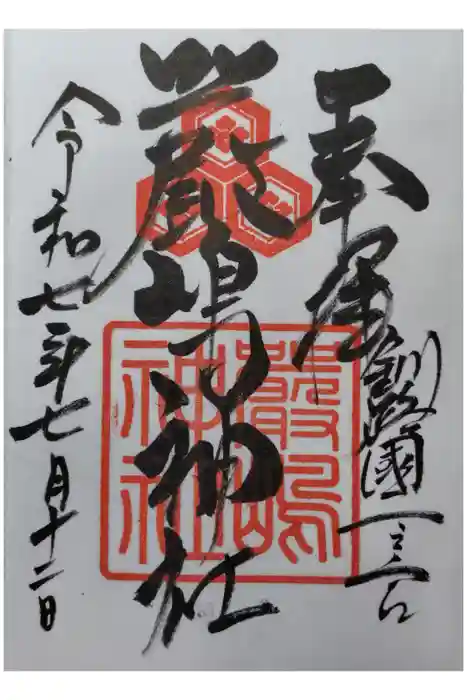 奉拝
釧路國一之宮
嚴嶋神社
令和七年七月十二日
嚴嶋
神社